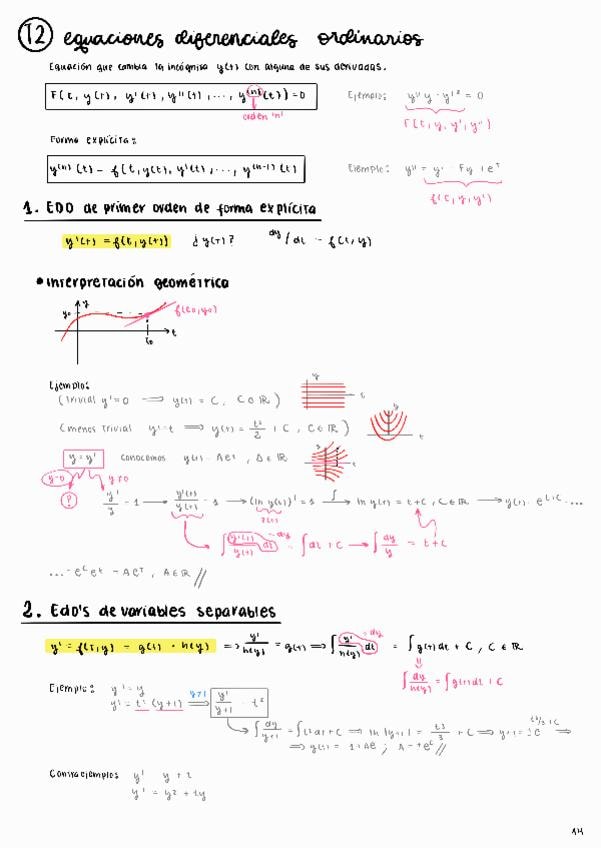 T2 equaciones diferenciales ordinarios
Equación que cambia la incógnisa y(t) con alguna de sus derivadas.
F(t, y(t), y'(t), y''(t), ..., y⁽ⁿ⁾(t)) = 0 Ejemplo: y''y · y'² = 0
orden 'n' F(t, y, y', y'')
Forma explícita:
y⁽ⁿ⁾(t) = f(t, y(t), y'(t), ..., y⁽ⁿ⁻¹⁾(t)) Ejemplo:
f(t, y, y')
1. EDO de primer orden de forma explícita
y'(t) = f(t, y(t)) ¿y(t)? dy/dt = f(t, y)
• Interpretación geométrica
y
y₀ f(t₀, y₀)
t
t₀
Ejemplo:
(Trivial y' = 0 ⟹ y(t) = C, C∈ℝ) y t
(menos trivial y' = t ⟹ y(t) = t²/2 + C, C∈ℝ) y t
y = y' conocemos y(t) = Aeᵗ, A∈ℝ
y=0 y≠0
? y'/y = 1 → y'(t)/y(t) = 1 → (ln y(t))' = 1 ∫→ ln y(t) = t+C, C∈ℝ → y(t) = eᵗ⁺ᶜ = ...
∫ y'(t)/y(t) dt = dy = ∫dt + C → ∫ dy/y = t+C
... = eᶜeᵗ = Aeᵗ, A∈ℝ //
2. Edo's de variables separables
y' = f(t,y) = g(t) · h(y) ⟹ y'/h(y) = g(t) ⟹ ∫ y'/h(y) dt = dy = ∫ g(t)dt + C, C∈ℝ
∫ dy/h(y) = ∫g(t)dt + C
Ejemplo: y' = y
y' = t² (y+1) ⟹ y'/y+1 = t²
∫ dy/y+1 = ∫t²dt + C ⟹ ln|y+1| = t³/3 + C ⟹
Contraejemplo: y' = y + t
y' = y² + ty
14